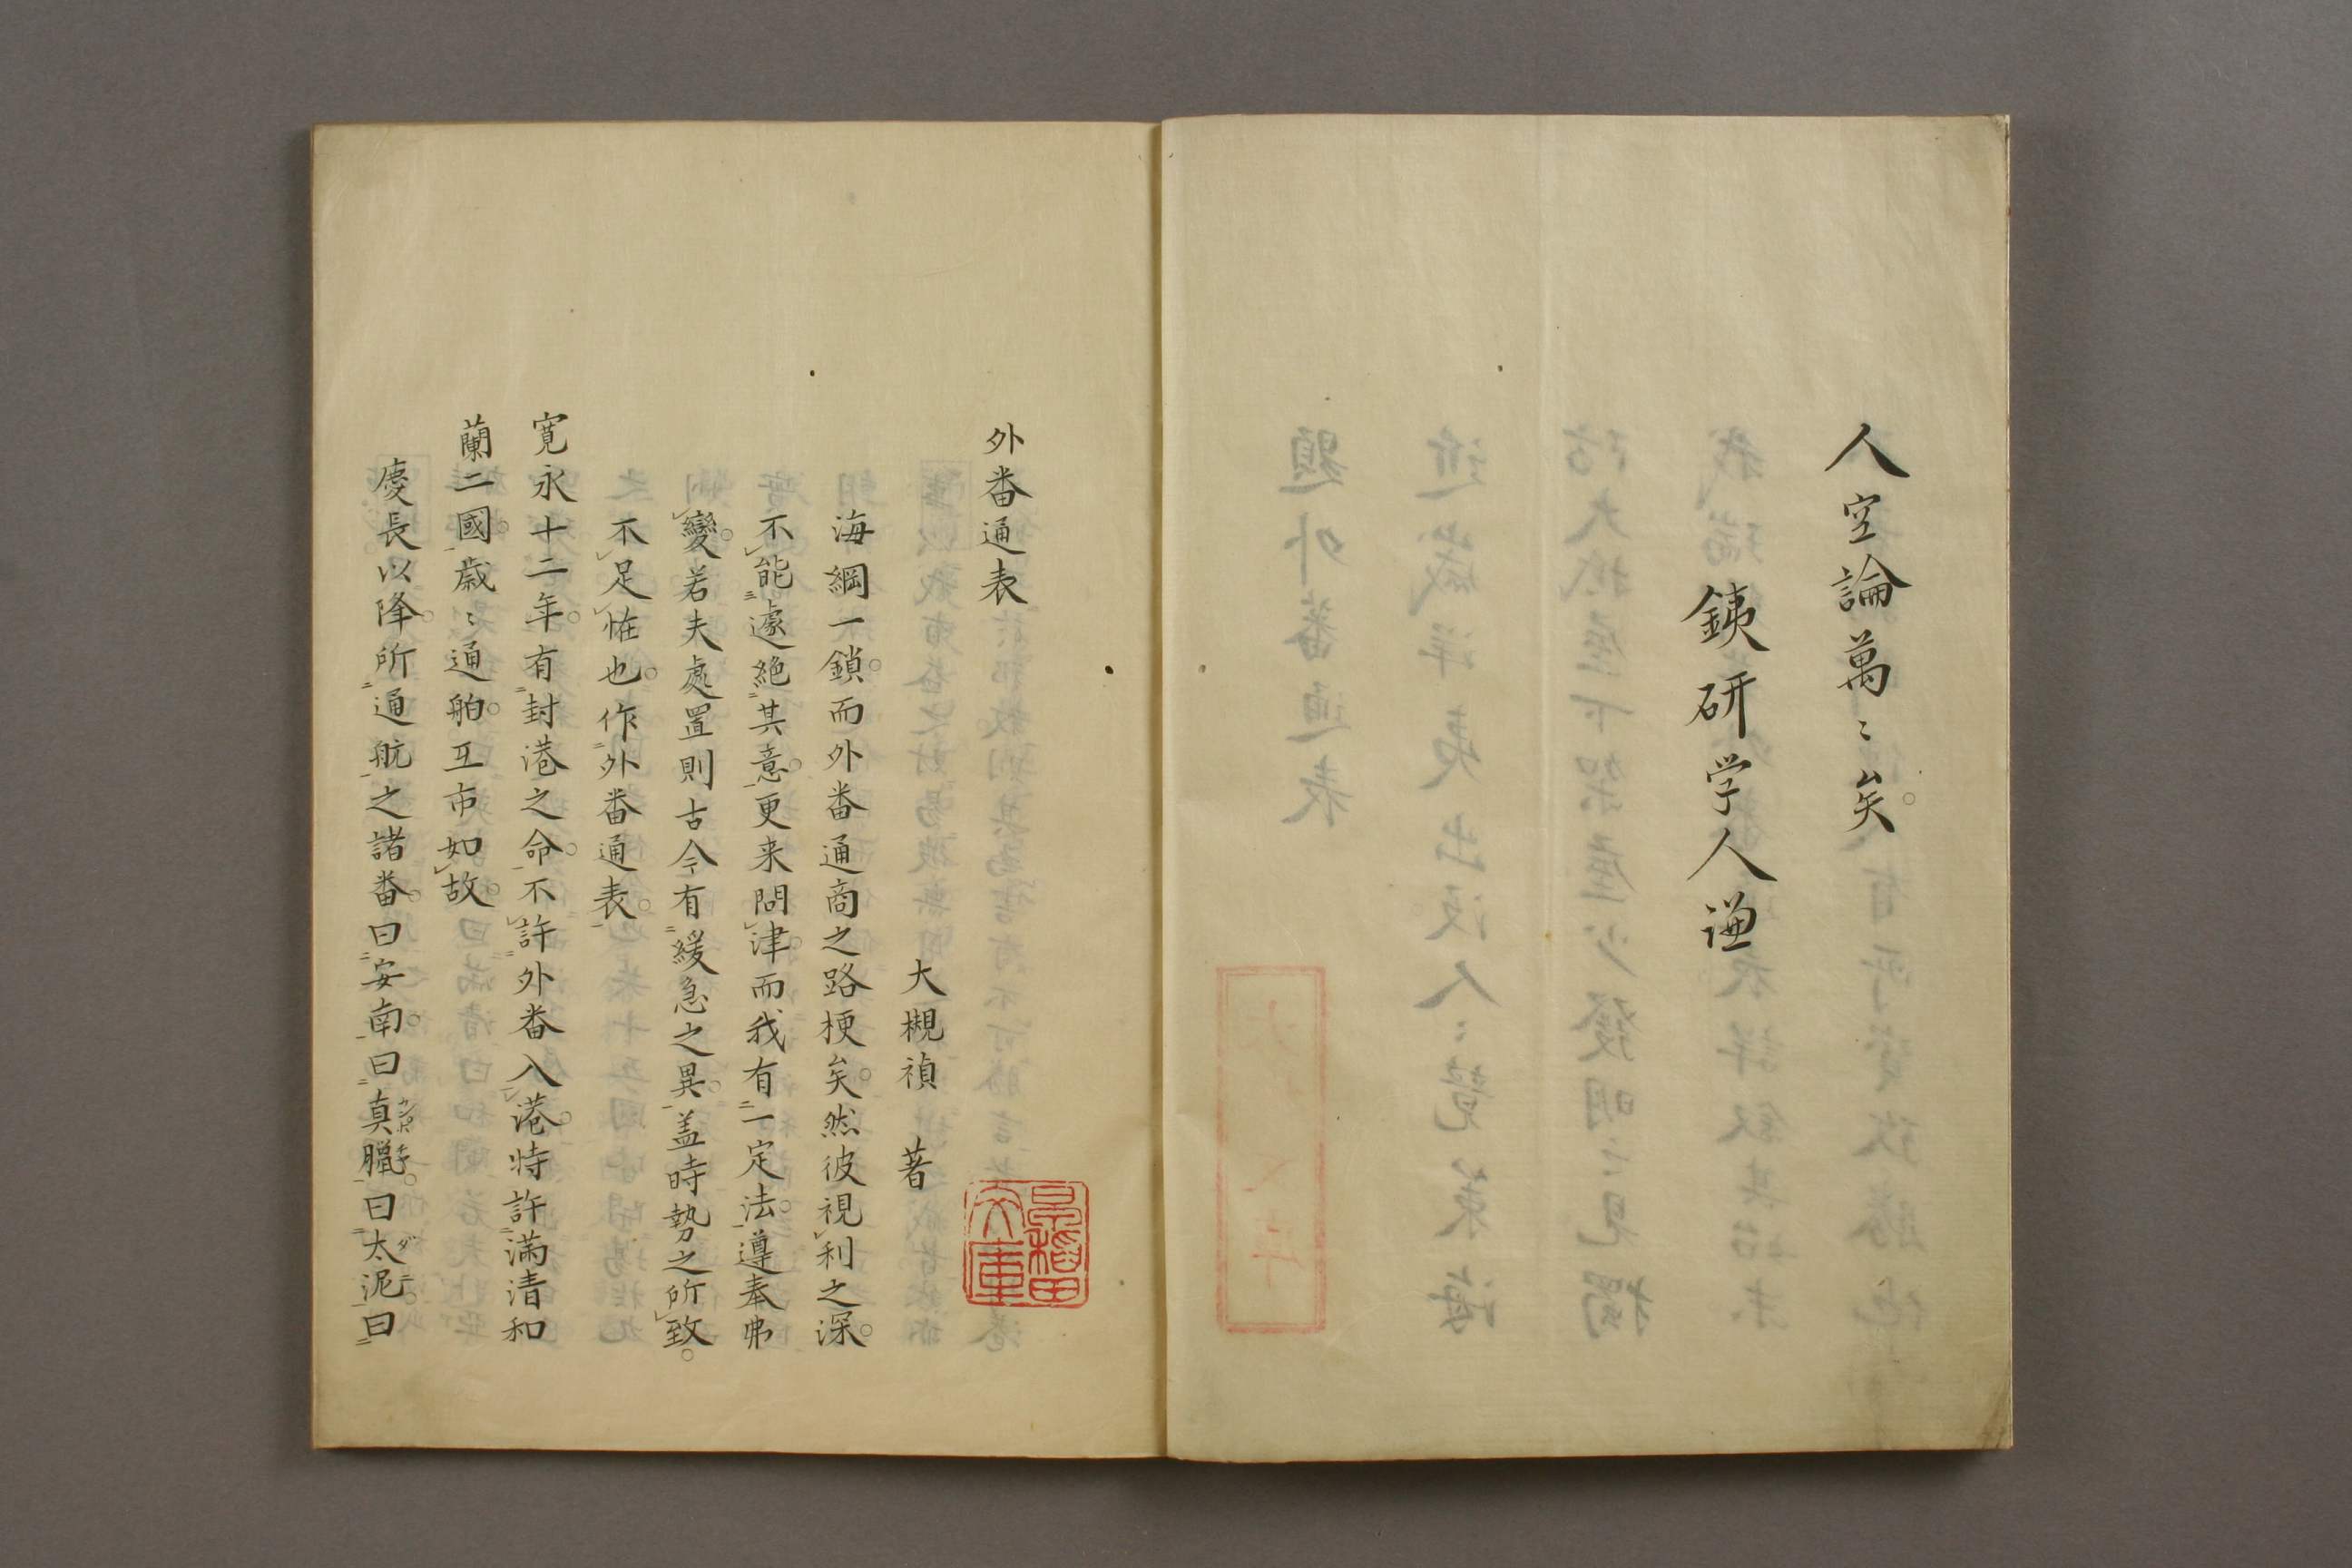 人空論萬〻矣。
銕研学人謙
外番通表
大槻禎 著
海綱一鎖。而外番通商之路梗矣。然彼視利之深。
不能遽絶其意。更来問津。而我有一定法。遵奉弗
變。若夫處置則古今有緩急之異。盖時勢之所致。
不足恠也。作外番通表。
寛永十二年。有封港之命。不許外番入港。特許満清和
蘭二國。歳〻通舶。互市如故。
慶長以降。所通航之諸番。曰安南。曰真臘。曰太泥。曰